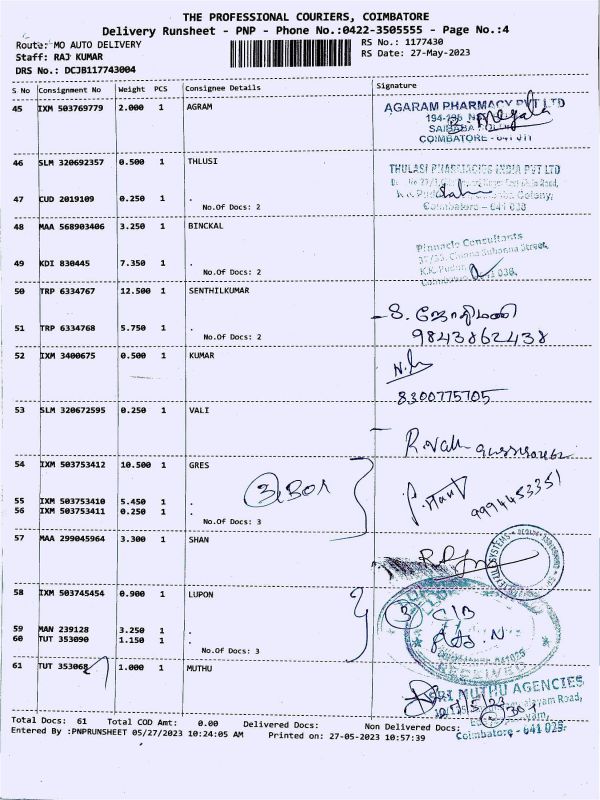 THE PROFESSIONAL COURIERS, COIMBATORE
Delivery Runsheet - PNP - Phone No.:0422-3505555 - Page No.:4
Route: MO AUTO DELIVERY RS No.: 1177430
Staff: RAJ KUMAR RS Date: 27-May-2023
DRS No.: DCJB117743004
S No Consignment No Weight PCS Consignee Details Signature
45 IXM 503769779 2.000 1 AGRAM
AGARAM PHARMACY PVT LTD
Megala
COIMBATORE - 641 011
46 SLM 320692357 0.500 1 THLUSI
THULASI PHARMACIES INDIA PVT LTD
47 CUD 2019109 0.250 1 .
No.Of Docs: 2
Coimbatore - 641 038
48 MAA 568903406 3.250 1 BINCKAL
Pinnacle Consultants
37/33, Chinna Subanna Street,
49 KDI 830445 7.350 1 .
No.Of Docs: 2
50 TRP 6334767 12.500 1 SENTHILKUMAR
S. ஜோதிமணி
51 TRP 6334768 5.750 1 .
No.Of Docs: 2
9843862438
52 IXM 3400675 0.500 1 KUMAR
8300775705
53 SLM 320672595 0.250 1 VALI
R.Valli
54 IXM 503753412 10.500 1 GRES
55 IXM 503753410 5.450 1 .
9994453351
56 IXM 503753411 0.250 1 .
No.Of Docs: 3
57 MAA 299045964 3.300 1 SHAN
58 IXM 503745454 0.900 1 LUPON
3 C/B
59 MAN 239128 3.250 1 .
60 TUT 353090 1.150 1 .
No.Of Docs: 3
RECEIVED
61 TUT 353068 1.000 1 MUTHU
SRI MUTHU AGENCIES
Coimbatore - 641 025.
Total Docs: 61 Total COD Amt: 0.00 Delivered Docs: Non Delivered Docs:
Entered By :PNPRUNSHEET 05/27/2023 10:24:05 AM Printed on: 27-05-2023 10:57:39